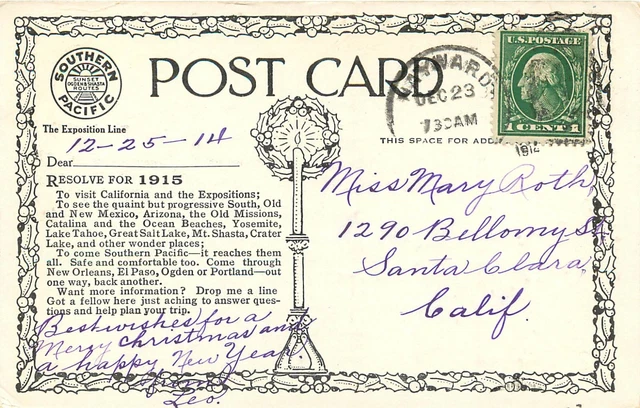 SOUTHERN PACIFIC
SUNSET
OGDEN & SHASTA
ROUTES
POST CARD
U.S. POSTAGE
1 CENT 1
DEC 23
730AM
The Exposition Line
12-25-14
THIS SPACE FOR
Dear
RESOLVE FOR 1915
To visit California and the Expositions;
To see the quaint but progressive South, Old
and New Mexico, Arizona, the Old Missions,
Catalina and the Ocean Beaches, Yosemite,
Lake Tahoe, Great Salt Lake, Mt. Shasta, Crater
Lake, and other wonder places;
To come Southern Pacific—it reaches them
all. Safe and comfortable too. Come through
New Orleans, El Paso, Ogden or Portland—out
one way, back another.
Want more information? Drop me a line
Got a fellow here just aching to answer ques-
tions and help plan your trip.
Best wishes for a
Merry Christmas and
a happy New Year.
from
Leo.
Miss Mary Roth,
1290 Bellomy St
Santa Clara,
Calif.